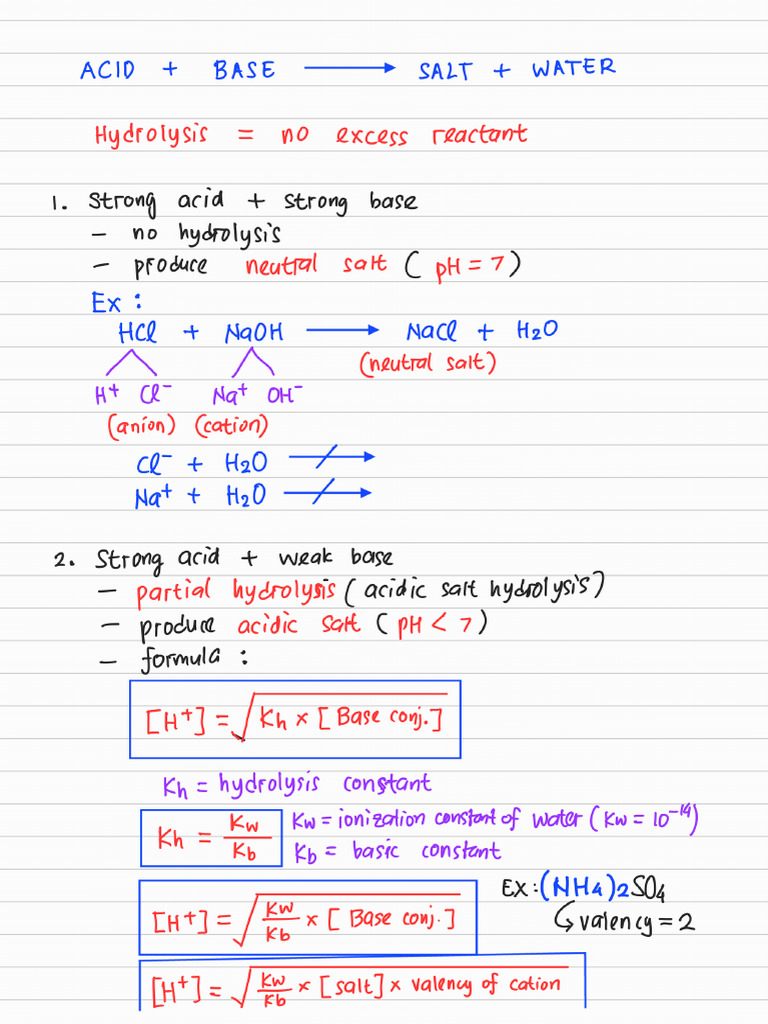 ACID + BASE ⟶ SALT + WATER
Hydrolysis = no excess reactant
1. Strong acid + strong base
– no hydrolysis
– produce neutral salt (pH = 7)
Ex :
HCl + NaOH ⟶ NaCl + H2O
(neutral salt)
H+ Cl− Na+ OH−
(anion) (cation)
Cl− + H2O ⟶
Na+ + H2O ⟶
2. Strong acid + weak base
– partial hydrolysis (acidic salt hydrolysis)
– produce acidic salt (pH < 7)
– formula :
[H+] = √Kh × [Base conj.]
Kh = hydrolysis constant
Kh = Kw/Kb
Kw = ionization constant of water (Kw = 10−14)
Kb = basic constant
[H+] = √Kw/Kb × [Base conj.]
EX : (NH4)2SO4
valency = 2
[H+] = √Kw/Kb × [salt] × valency of cation